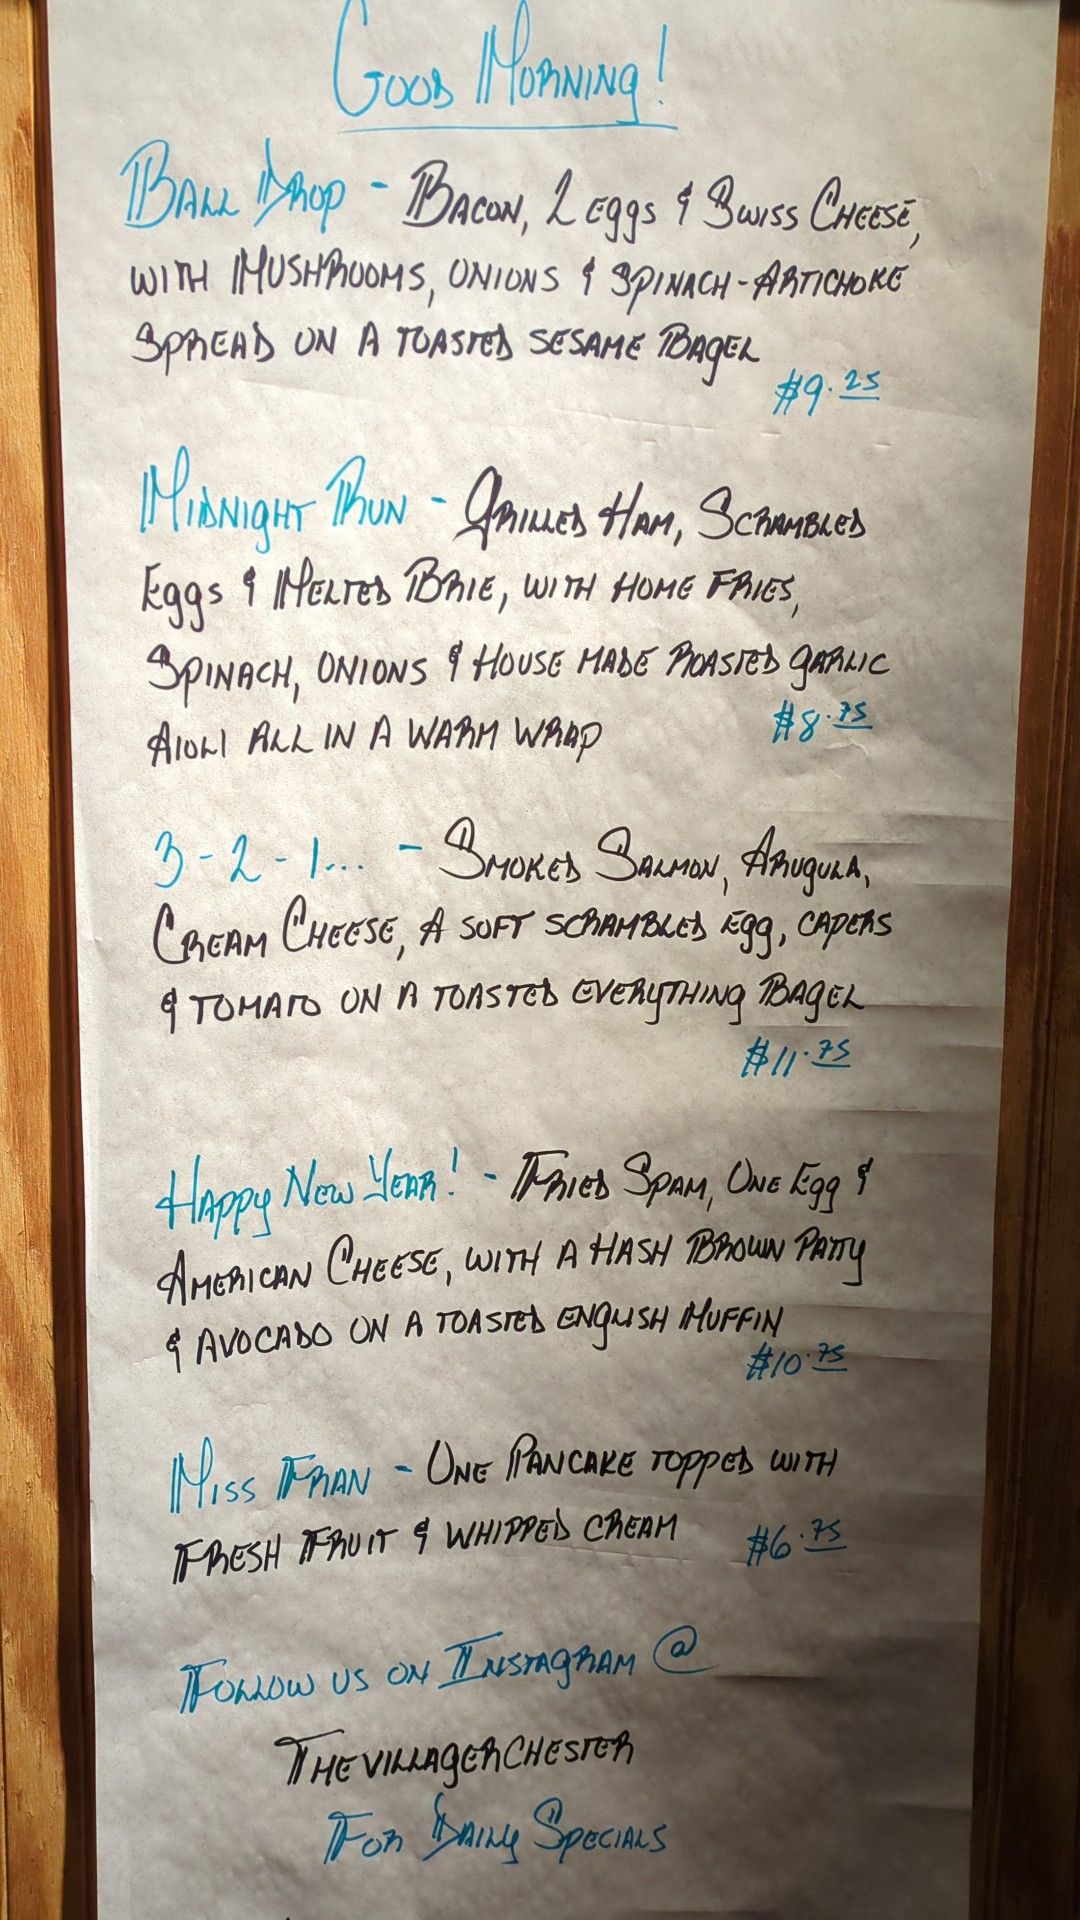 Good Morning!
Ball Drop - Bacon, 2 eggs & Swiss Cheese,
with Mushrooms, onions & Spinach-Artichoke
Spread on a toasted sesame Bagel
$9.25
Midnight Run - Grilled Ham, Scrambled
Eggs & Melted Brie, with home fries,
Spinach, onions & house made roasted garlic
Aioli all in a warm wrap $8.75
3-2-1... - Smoked Salmon, Arugula,
Cream Cheese, a soft scrambled egg, capers
& tomato on a toasted everything Bagel
$11.75
Happy New Year! - Fried Spam, One Egg &
American Cheese, with a Hash Brown Patty
& avocado on a toasted english Muffin
$10.75
Miss Fran - One Pancake topped with
Fresh Fruit & whipped cream $6.75
Follow us on Instagram @
Thevillagerchester
For Daily Specials